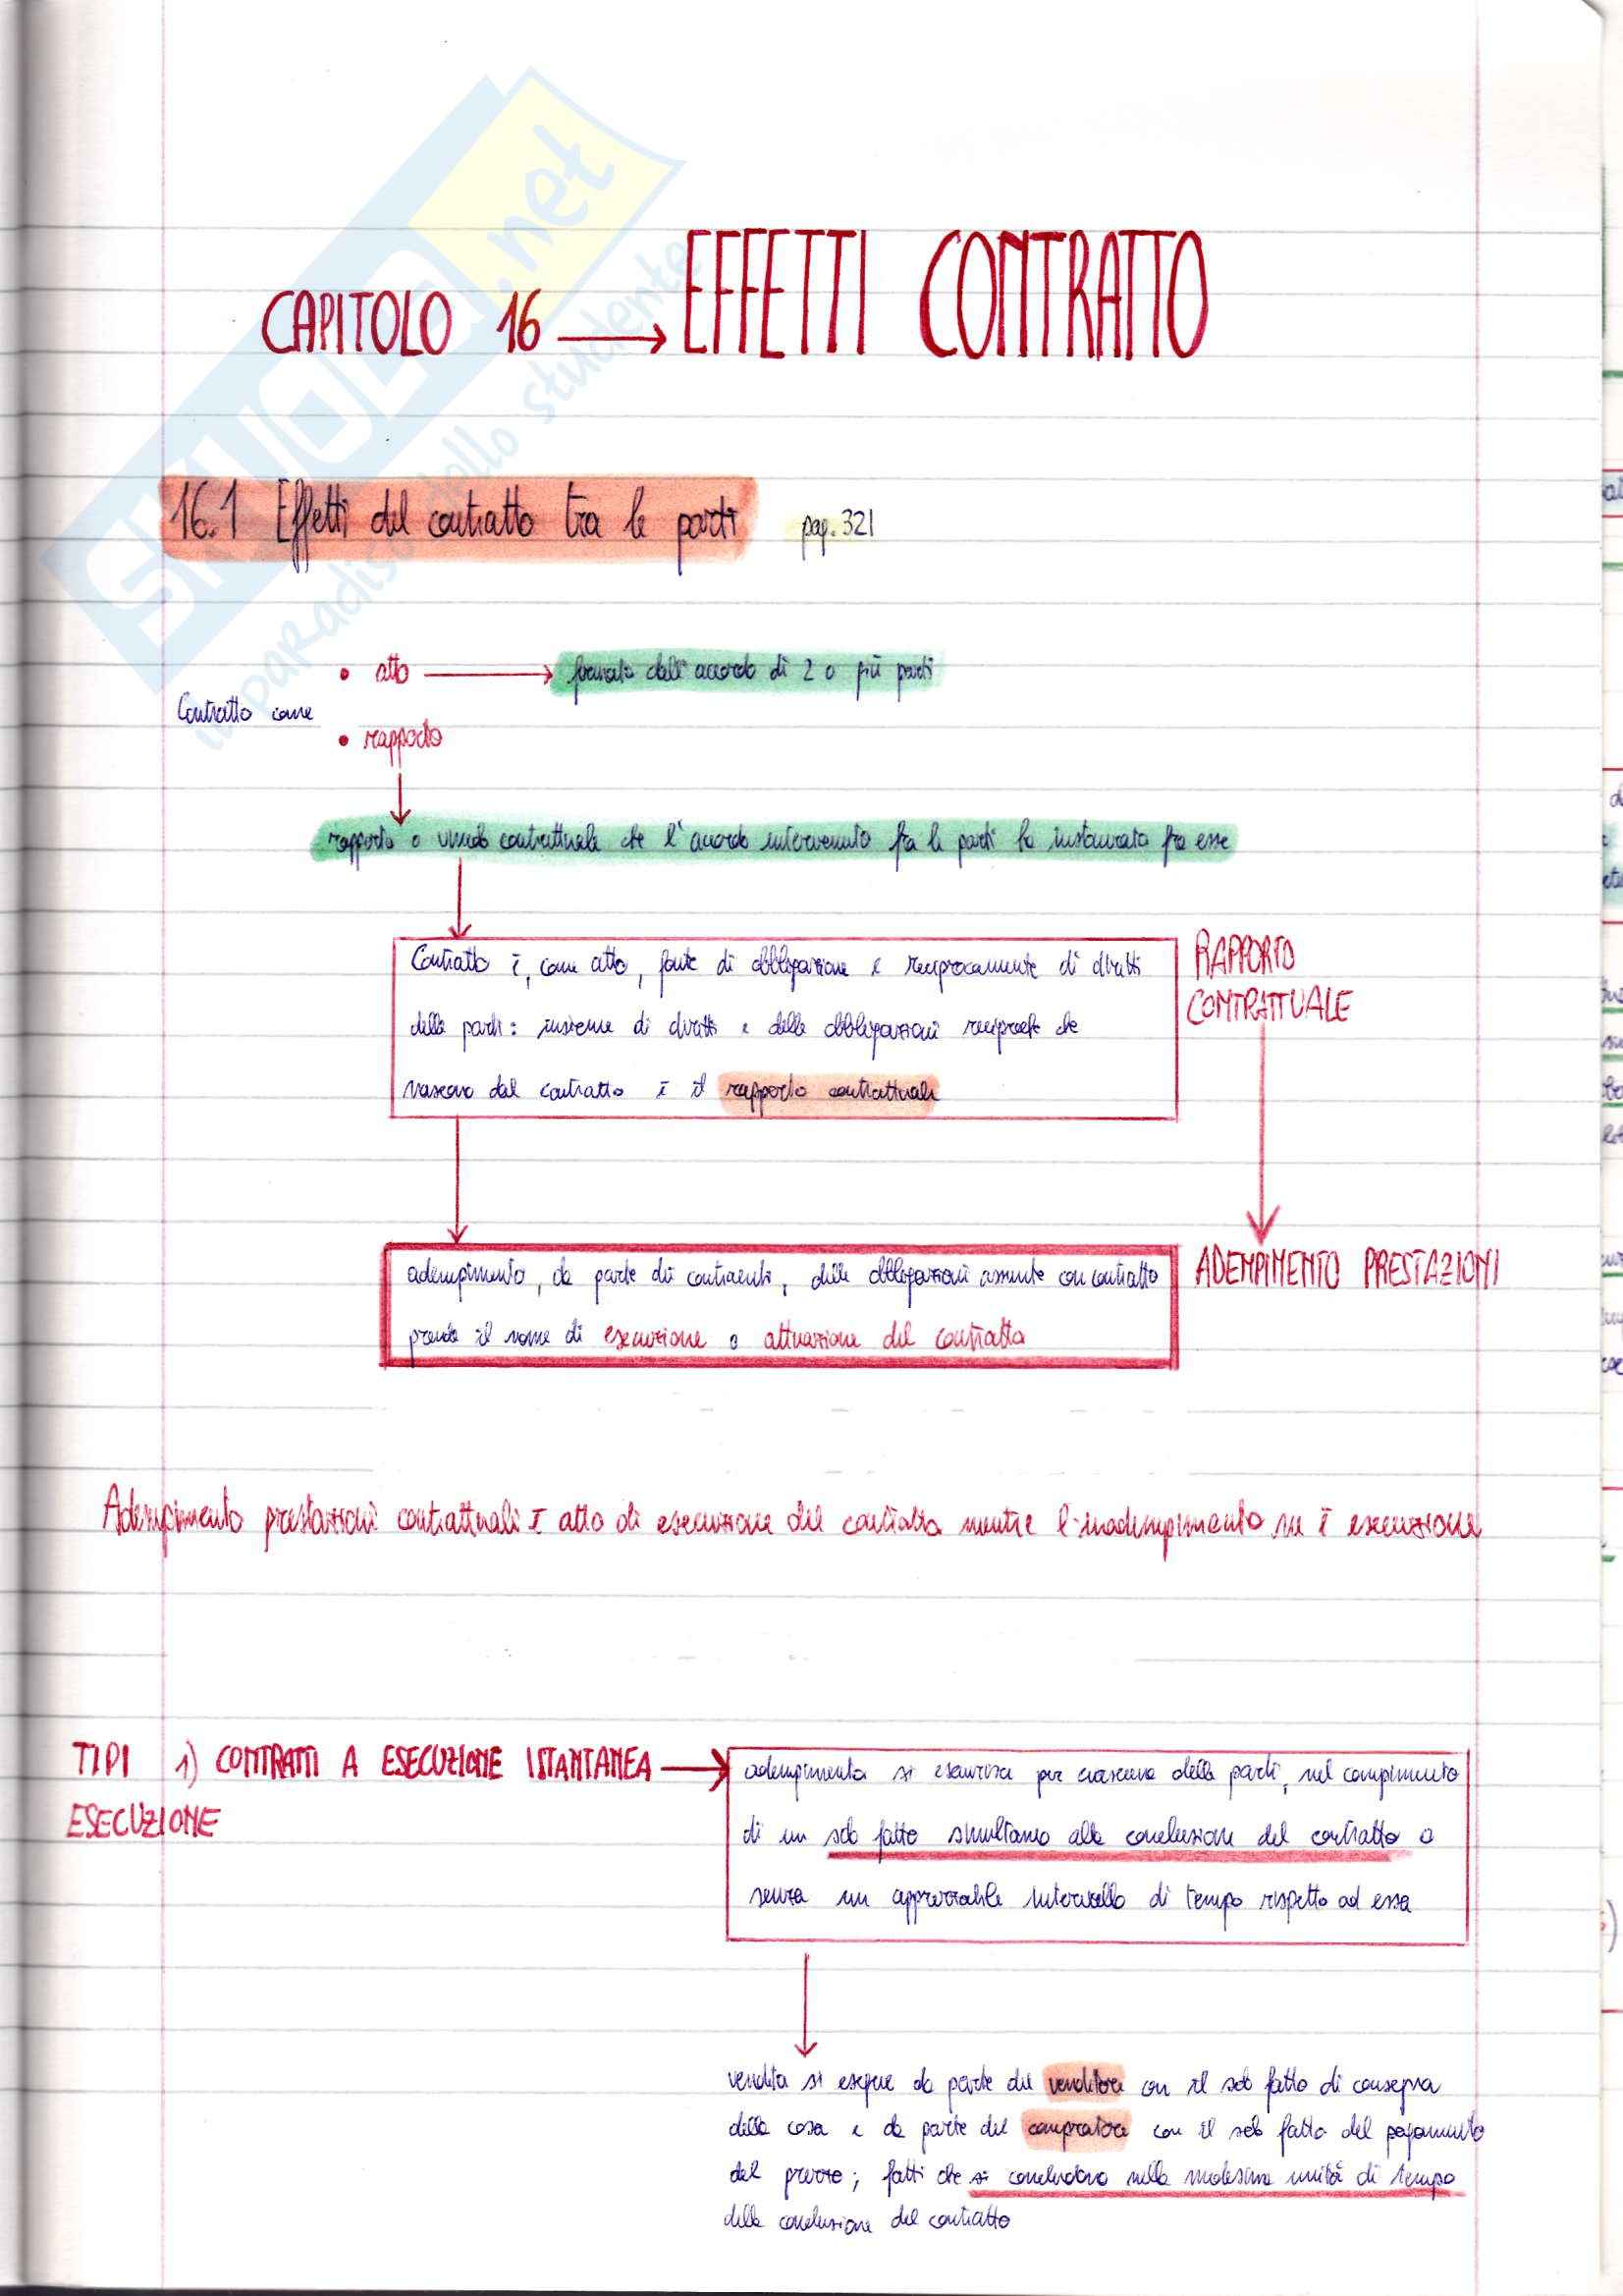 CAPITOLO 16 → EFFETTI CONTRATTO
16.1 Effetti del contratto tra le parti pag. 321
• atto → formato dall'accordo di 2 o più parti
Contratto come
• rapporto
rapporto o vincolo contrattuale che l'accordo intervenuto fra le parti ha instaurato fra esse
Contratto è, come atto, fonte di obbligazione e reciprocamente di diritti
delle parti: insieme di diritti e delle obbligazioni reciproche che
nascono dal contratto è il rapporto contrattuale
RAPPORTO
CONTRATTUALE
adempimento, da parte dei contraenti, delle obbligazioni assunte con contratto
prende il nome di esecuzione o attuazione del contratto
ADEMPIMENTO PRESTAZIONI
Adempimento prestazioni contrattuali è atto di esecuzione del contratto mentre l'inadempimento ne è esecuzione
TIPI
ESECUZIONE
1) CONTRATTI A ESECUZIONE ISTANTANEA →
adempimento si esaurisce per ciascuna delle parti, nel compimento
di un solo fatto simultaneo alla conclusione del contratto o
senza un apprezzabile intervallo di tempo rispetto ad essa
vendita si esegue da parte del venditore con il solo fatto di consegna
della cosa e da parte del compratore con il solo fatto del pagamento
del prezzo; fatti che si concludono nella medesima unità di tempo
della conclusione del contratto
SKUOLA.net
il paradiso dello studente